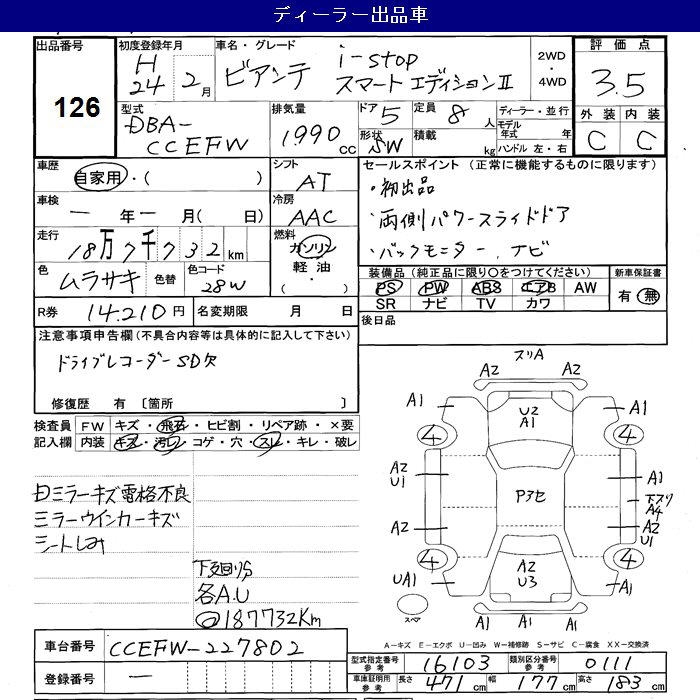 ディーラー出品車
出品番号 126
初度登録年月 H24 2月
車名・グレード ビアンテ i-stop スマートエディションⅡ
2WD ・ 4WD
評価点 3.5
外装 C 内装 C
型式 DBA-CCEFW
排気量 1990 cc
ドア 5
定員 8 人
形状 SW
積載 kg
ディーラー・並行
モデル年式 年
ハンドル 左・右
車歴 自家用・( )
シフト AT
セールスポイント (正常に機能するものに限ります)
・初出品
・両側パワースライドドア
・バックモニター、ナビ
車検 一年一月( 日)
冷房 AAC
走行 18万7千732km
燃料 ガソリン 軽油・
色 ムラサキ 色替
色コード 28W
装備品 (純正品に限り○をつけてください)
PS PW ABS エアB AW
SR ナビ TV カワ
新車保証書 有 無
R券 14.210円
名変期限 月 日
後日品
注意事項申告欄 (不具合内容等は具体的に記入して下さい)
ドライブレコーダーSD欠
修復歴 有 〔箇所 〕
検査員記入欄
FW キズ・飛石・ヒビ割・リペア跡・×要
内装 キズ・汚レ・コゲ・穴・スレ・キレ・破レ
ミラーキズ電格不良
ミラーウインカーキズ
シートしみ
下廻りS
各A.U
187732Km
スリA
A2 A2
A1 A1
U2
A1
4 4
A2
U1
A1
Pアセ
下スリ
A4
A2
A2
U1
4 4
A2
U3
UA1 A1
A1 A1 A1
スペア
A-キズ E-エクボ U-凹み W-補修跡 S-サビ C-腐食 XX-交換済
車台番号 CCEFW-227802
登録番号 —
型式指定番号 参考 16103
類別区分番号 参考 0111
車庫証明用 参考 長さ 471cm 幅 177cm 高さ 183cm